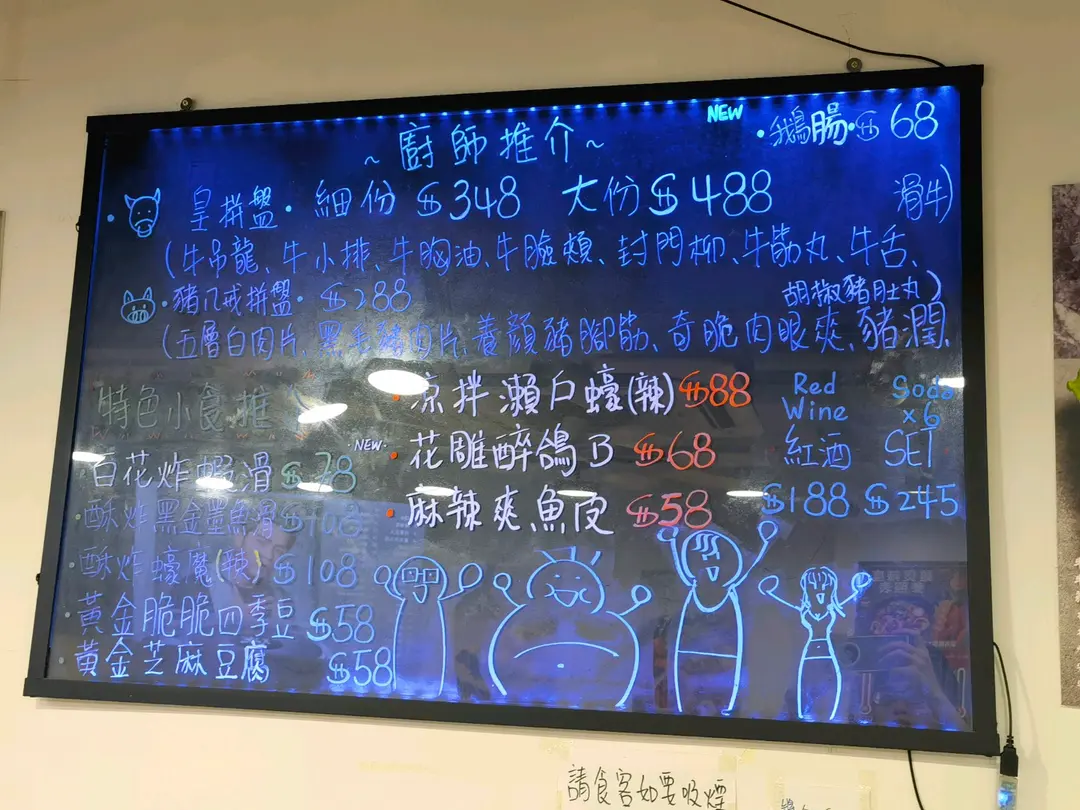 ~廚師推介~
NEW
·鵝腸·$68
·皇拼盤· 細份 $348 大份 $488
(牛吊龍、牛小排、牛胸油、牛臉頰、封門柳、牛筋丸、牛舌、
滑牛)
·豬八戒拼盤· $288
(五層白肉片、黑毛豬肉片、養顏豬腳筋、奇脆肉眼夾、豬潤、
胡椒豬肚丸)
特色小食推
百花炸 滑 $78
·酥炸黑金墨魚滑 $108
·酥炸蠔魔(辣) $108
·黃金脆脆四季豆 $58
·黃金芝麻豆腐 $58
·涼拌瀨戶蠔(辣) $88
·NEW·
·花雕醉鴿B $68
·麻辣爽魚皮 $58
Red
Wine
紅酒
$188
Soda
x6
SET
$245
請食客如要吸煙